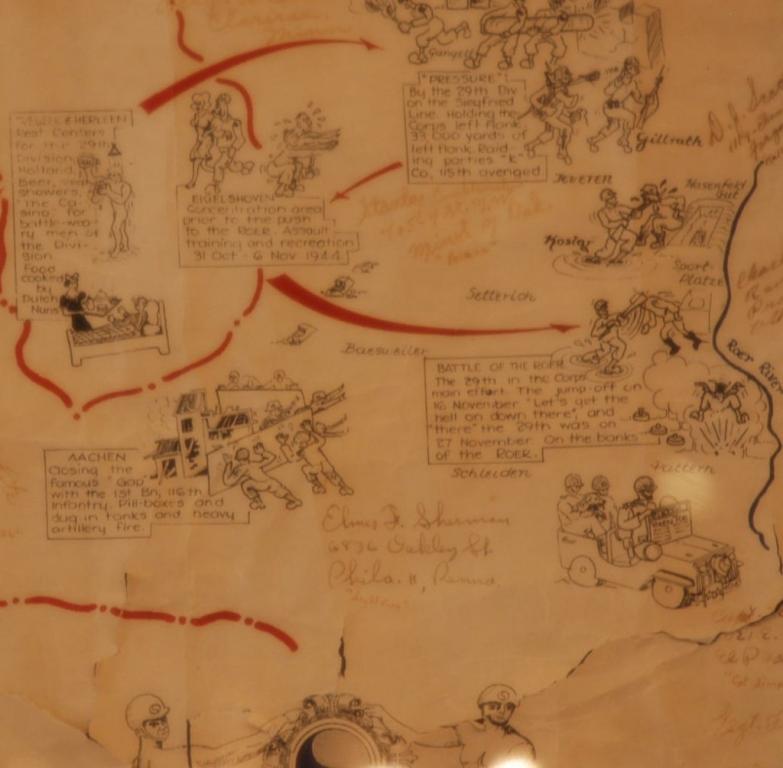 Gangelt
"PRESSURE"
By the 29th Div
on the Siegfried
Line. Holding the
Corps left flank
33,000 yards of
left flank. Raid-
ing parties "K"
Co, 115th avenged
Gillrath
TEVEREN
& HEERLEN
Rest Centers
for the 29th
Division
Holland.
Beer,
showers,
"The Ca-
sino" for
battle-wea-
ry men of
the Divi-
sion
Food
cooked
by
Dutch
Nuns
EIGELSHOVEN
Concentration area
prior to the push
to the ROER. Assault
training and recreation
31 Oct - 6 Nov 1944
Hasenfeld
Gut
Koslar
Sport-
Platze
Setterich
Baesweiler
Roer River
BATTLE OF THE ROER
The 29th in the Corps
main effort. The jump-off on
16 November "Let's get the
hell on down there", and
"there" the 29th was on
27 November. On the banks
of the ROER.
Schleiden
AACHEN
Closing the
famous "Gap"
with the 1st Bn, 116th
Infantry. Pill-boxes and
dug in tanks and heavy
artillery fire.
Elmer F. Sherman
6836 Oakley St
Phila. 11, Penna.